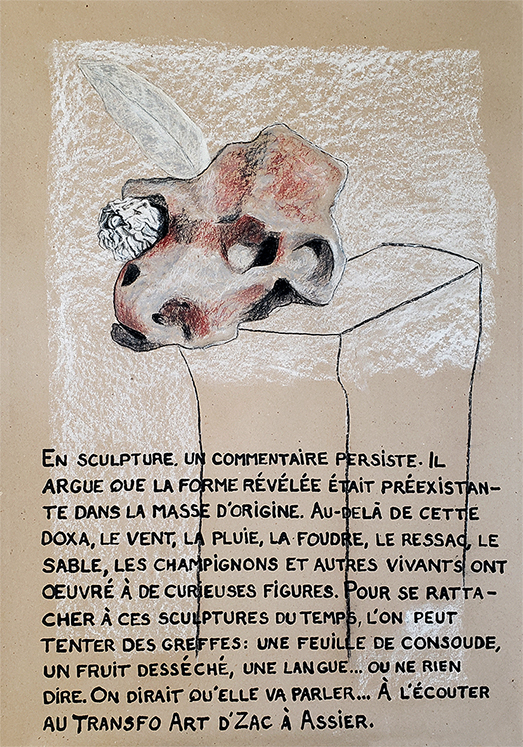 EN SCULPTURE. UN COMMENTAIRE PERSISTE. IL
ARGUE QUE LA FORME RÉVÉLÉE ÉTAIT PRÉEXISTAN-
TE DANS LA MASSE D'ORIGINE. AU-DELÀ DE CETTE
DOXA, LE VENT, LA PLUIE, LA FOUDRE, LE RESSAC, LE
SABLE, LES CHAMPIGNONS ET AUTRES VIVANTS ONT
ŒUVRÉ À DE CURIEUSES FIGURES. POUR SE RATTA-
CHER À CES SCULPTURES DU TEMPS, L'ON PEUT
TENTER DES GREFFES: UNE FEUILLE DE CONSOUDE,
UN FRUIT DESSÉCHÉ, UNE LANGUE... OU NE RIEN
DIRE. ON DIRAIT QU'ELLE VA PARLER... À L'ÉCOUTER
AU TRANSFO ART D'ZAC À ASSIER.